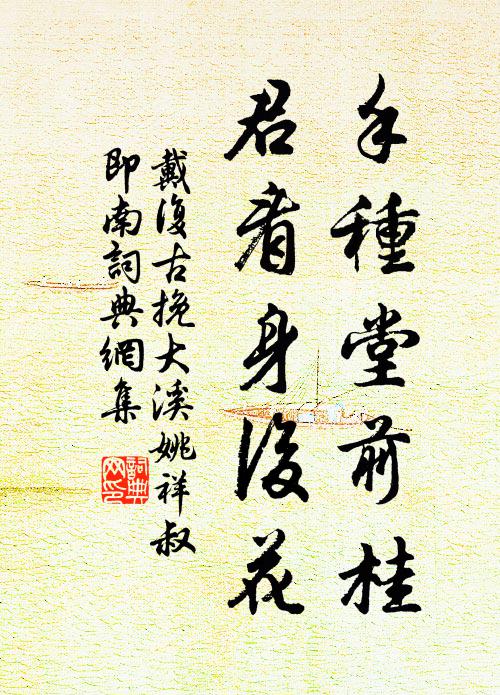 手種堂前桂
君看身後花
戴復古挽大溪姚祥叔
即南詞典網集
詞典
网印